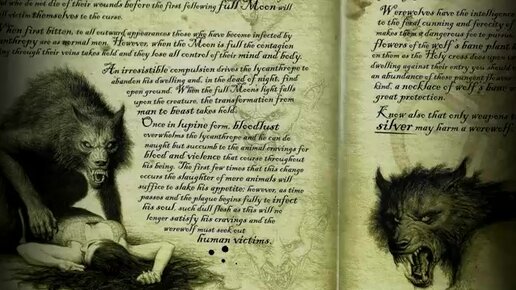 who do not die of their wounds before the first following full Moon will
victim themselves to the curse.
When first bitten, to all outward appearances those who have become infected by
anthropy are as normal men. However, when the Moon is full the contagion
through their veins takes hold and they lose all control of their mind and body.
An irresistible compulsion drives the lycanthrope to
abandon his dwelling and, in the dead of night, find
open ground. When the full Moons light falls
upon the creature, the transformation from
man to beast takes hold.
Once in lupine form, bloodlust
overwhelms the lycanthrope and he can do
naught but succumb to the animal cravings for
blood and violence that course throughout
his being. The first few times that this change
occurs the slaughter of mere animals will
suffice to slake his appetite; however, as time
passes and the plague begins fully to infect
his soul, such dull flesh as this will no
longer satisfy his cravings and the
werewolf must seek out
human victims.
Werewolves have the intelligence
to the feral cunning and ferocity of
makes them a dangerous foe to pursue.
flowers of the wolf's bane plant
on them as the Holy cross does upon
dwelling against their entry you should
an abundance of these pungent flowers
kind, a necklace of wolf's bane
great protection.
Know also that only weapons
silver may harm a werewolf